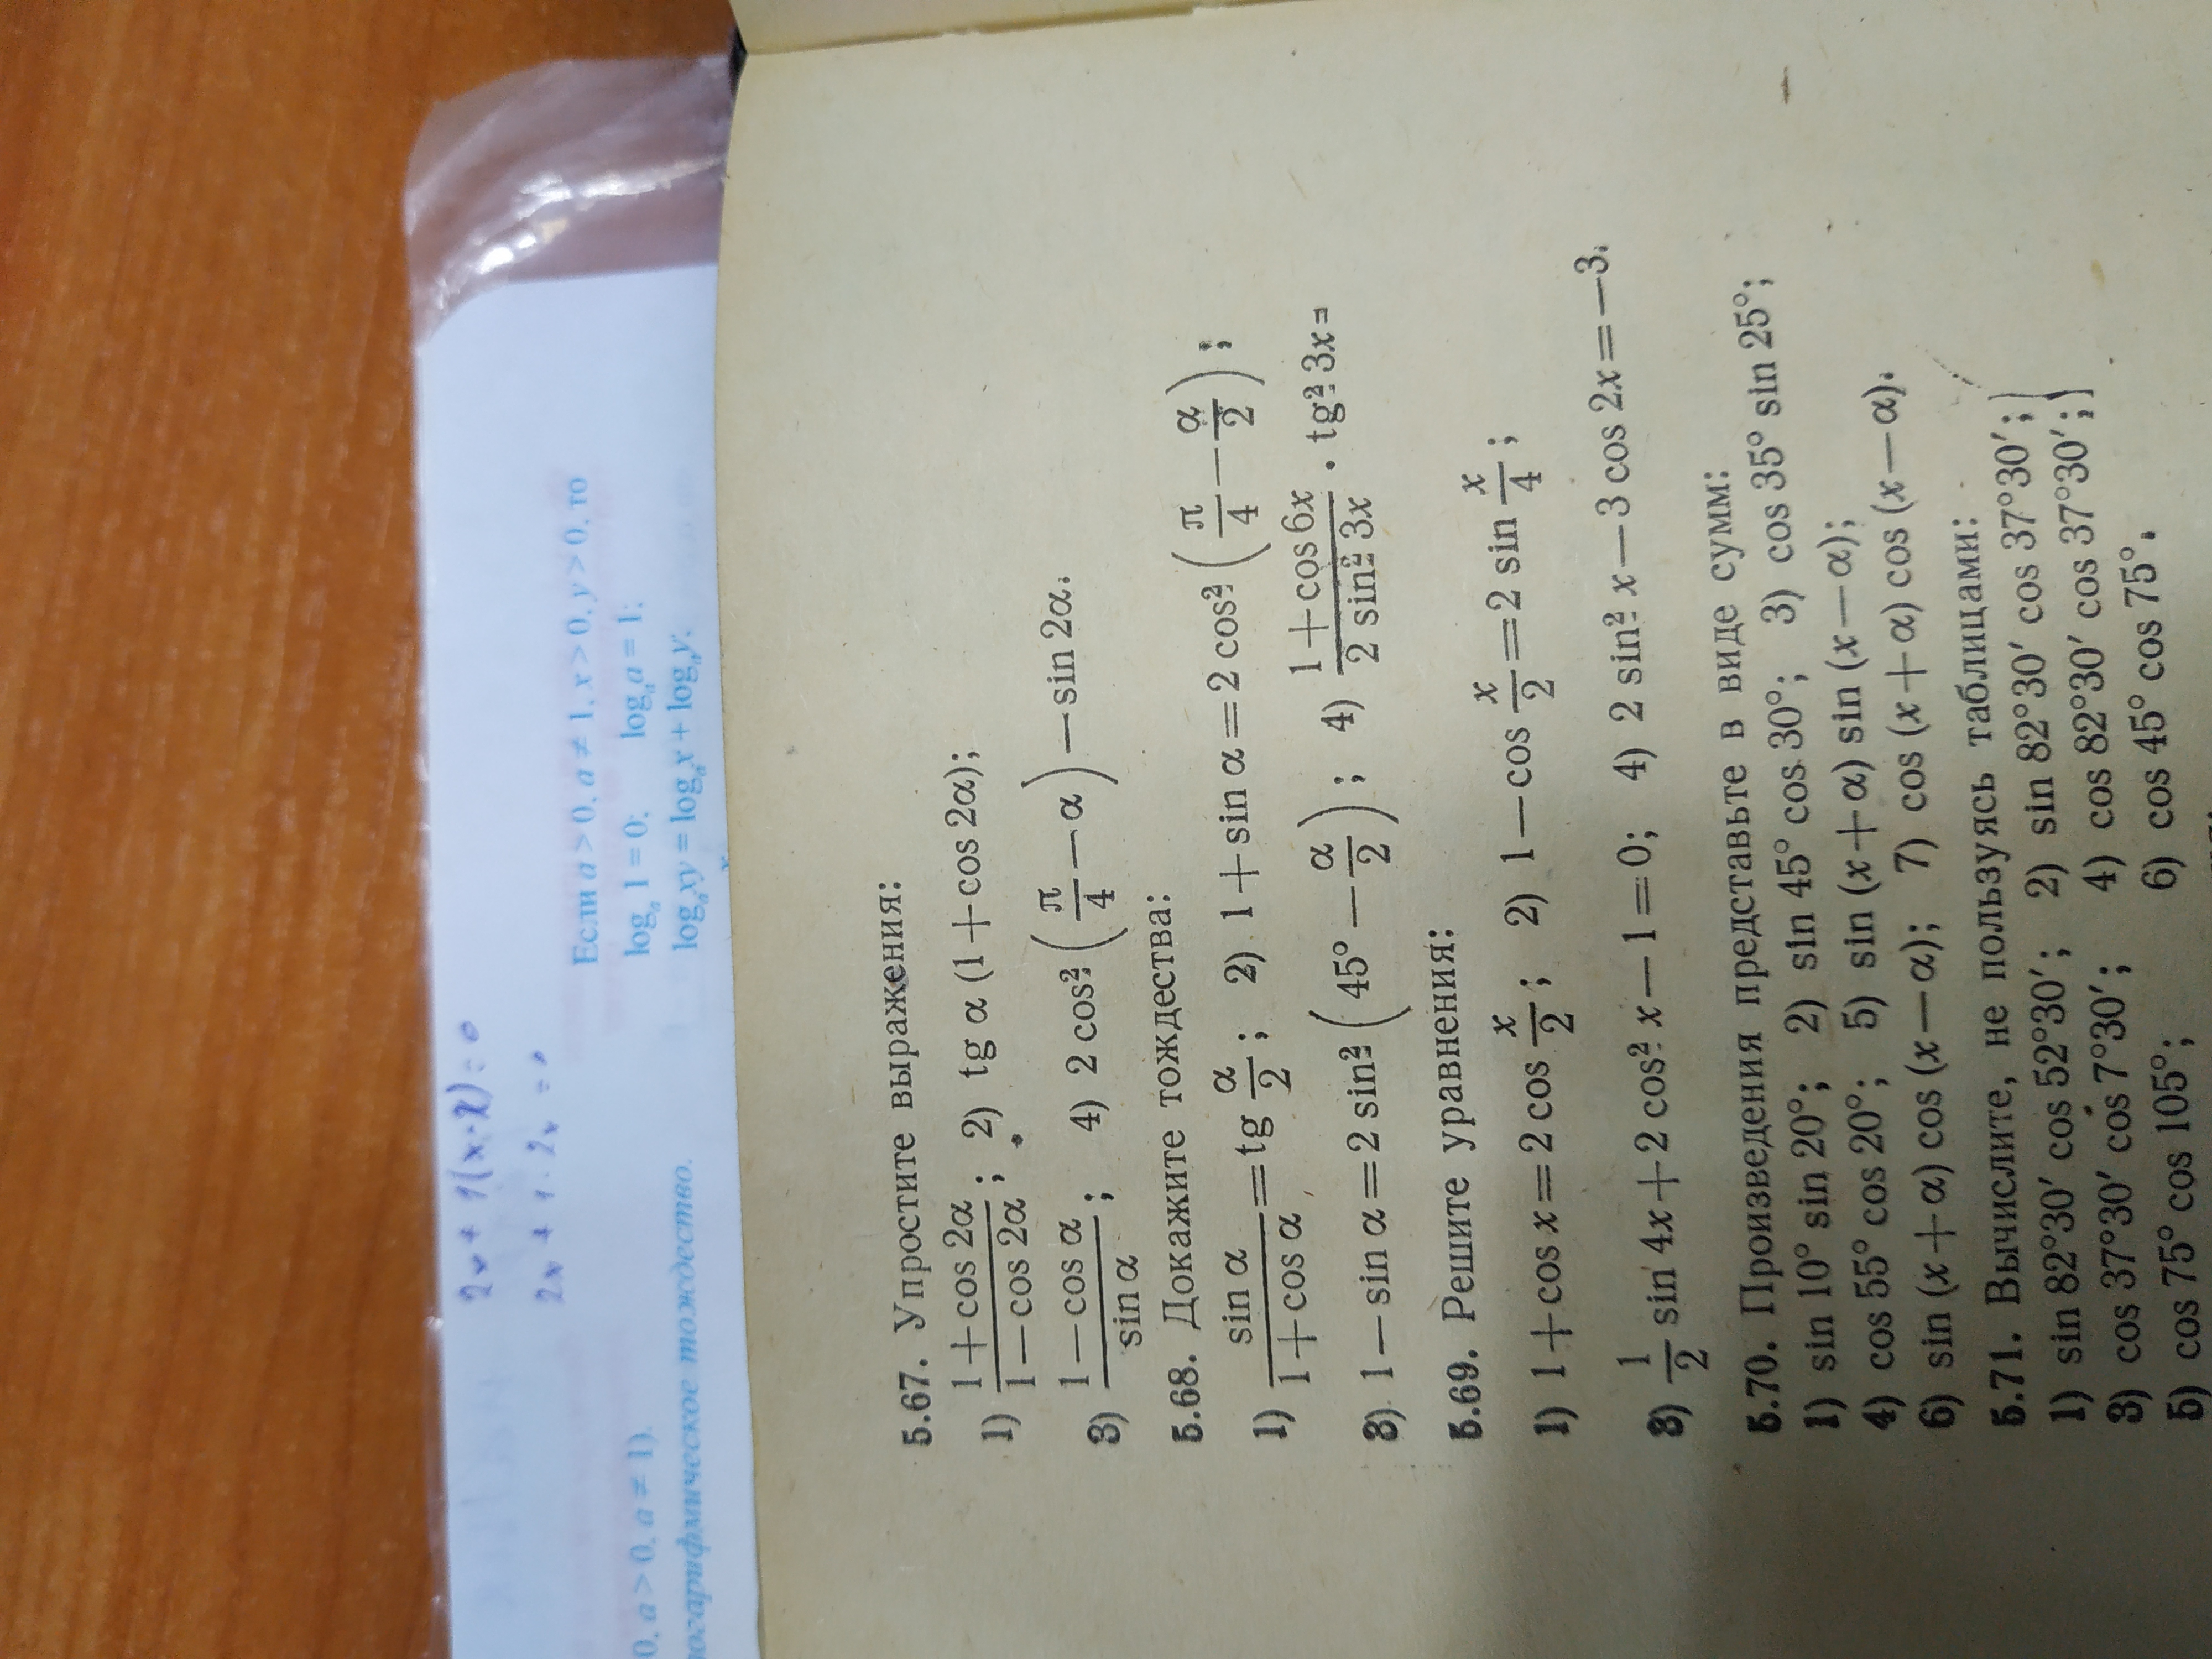 2x + 1(x-2) = 0
Если a > 0, a ≠ 1, x > 0, y > 0, то
logₐ 1 = 0; logₐ a = 1;
logₐ xy = logₐ x + logₐ y.
0, a > 0, a ≠ 1).
тождество.
5.67. Упростите выражения:
1) (1+cos 2α)/(1−cos 2α); 2) tg α (1+cos 2α);
3) (1−cos α)/(sin α); 4) 2 cos² (π/4−α)−sin 2α.
5.68. Докажите тождества:
1) (sin α)/(1+cos α)=tg α/2; 2) 1+sin α=2 cos² (π/4−α/2);
3) 1−sin α=2 sin² (45°−α/2); 4) (1+cos 6x)/(2 sin² 3x) · tg² 3x=
5.69. Решите уравнения:
1) 1+cos x=2 cos x/2; 2) 1−cos x/2=2 sin x/4;
3) 1/2 sin 4x+2 cos² x−1=0; 4) 2 sin² x−3 cos 2x=−3.
5.70. Произведения представьте в виде сумм:
1) sin 10° sin 20°; 2) sin 45° cos 30°; 3) cos 35° sin 25°;
4) cos 55° cos 20°; 5) sin (x+α) sin (x−α);
6) sin (x+α) cos (x−α); 7) cos (x+α) cos (x−α).
5.71. Вычислите, не пользуясь таблицами:
1) sin 82°30′ cos 52°30′; 2) sin 82°30′ cos 37°30′;
3) cos 37°30′ cos 7°30′; 4) cos 82°30′ cos 37°30′;
5) cos 75° cos 105°; 6) cos 45° cos 75°.